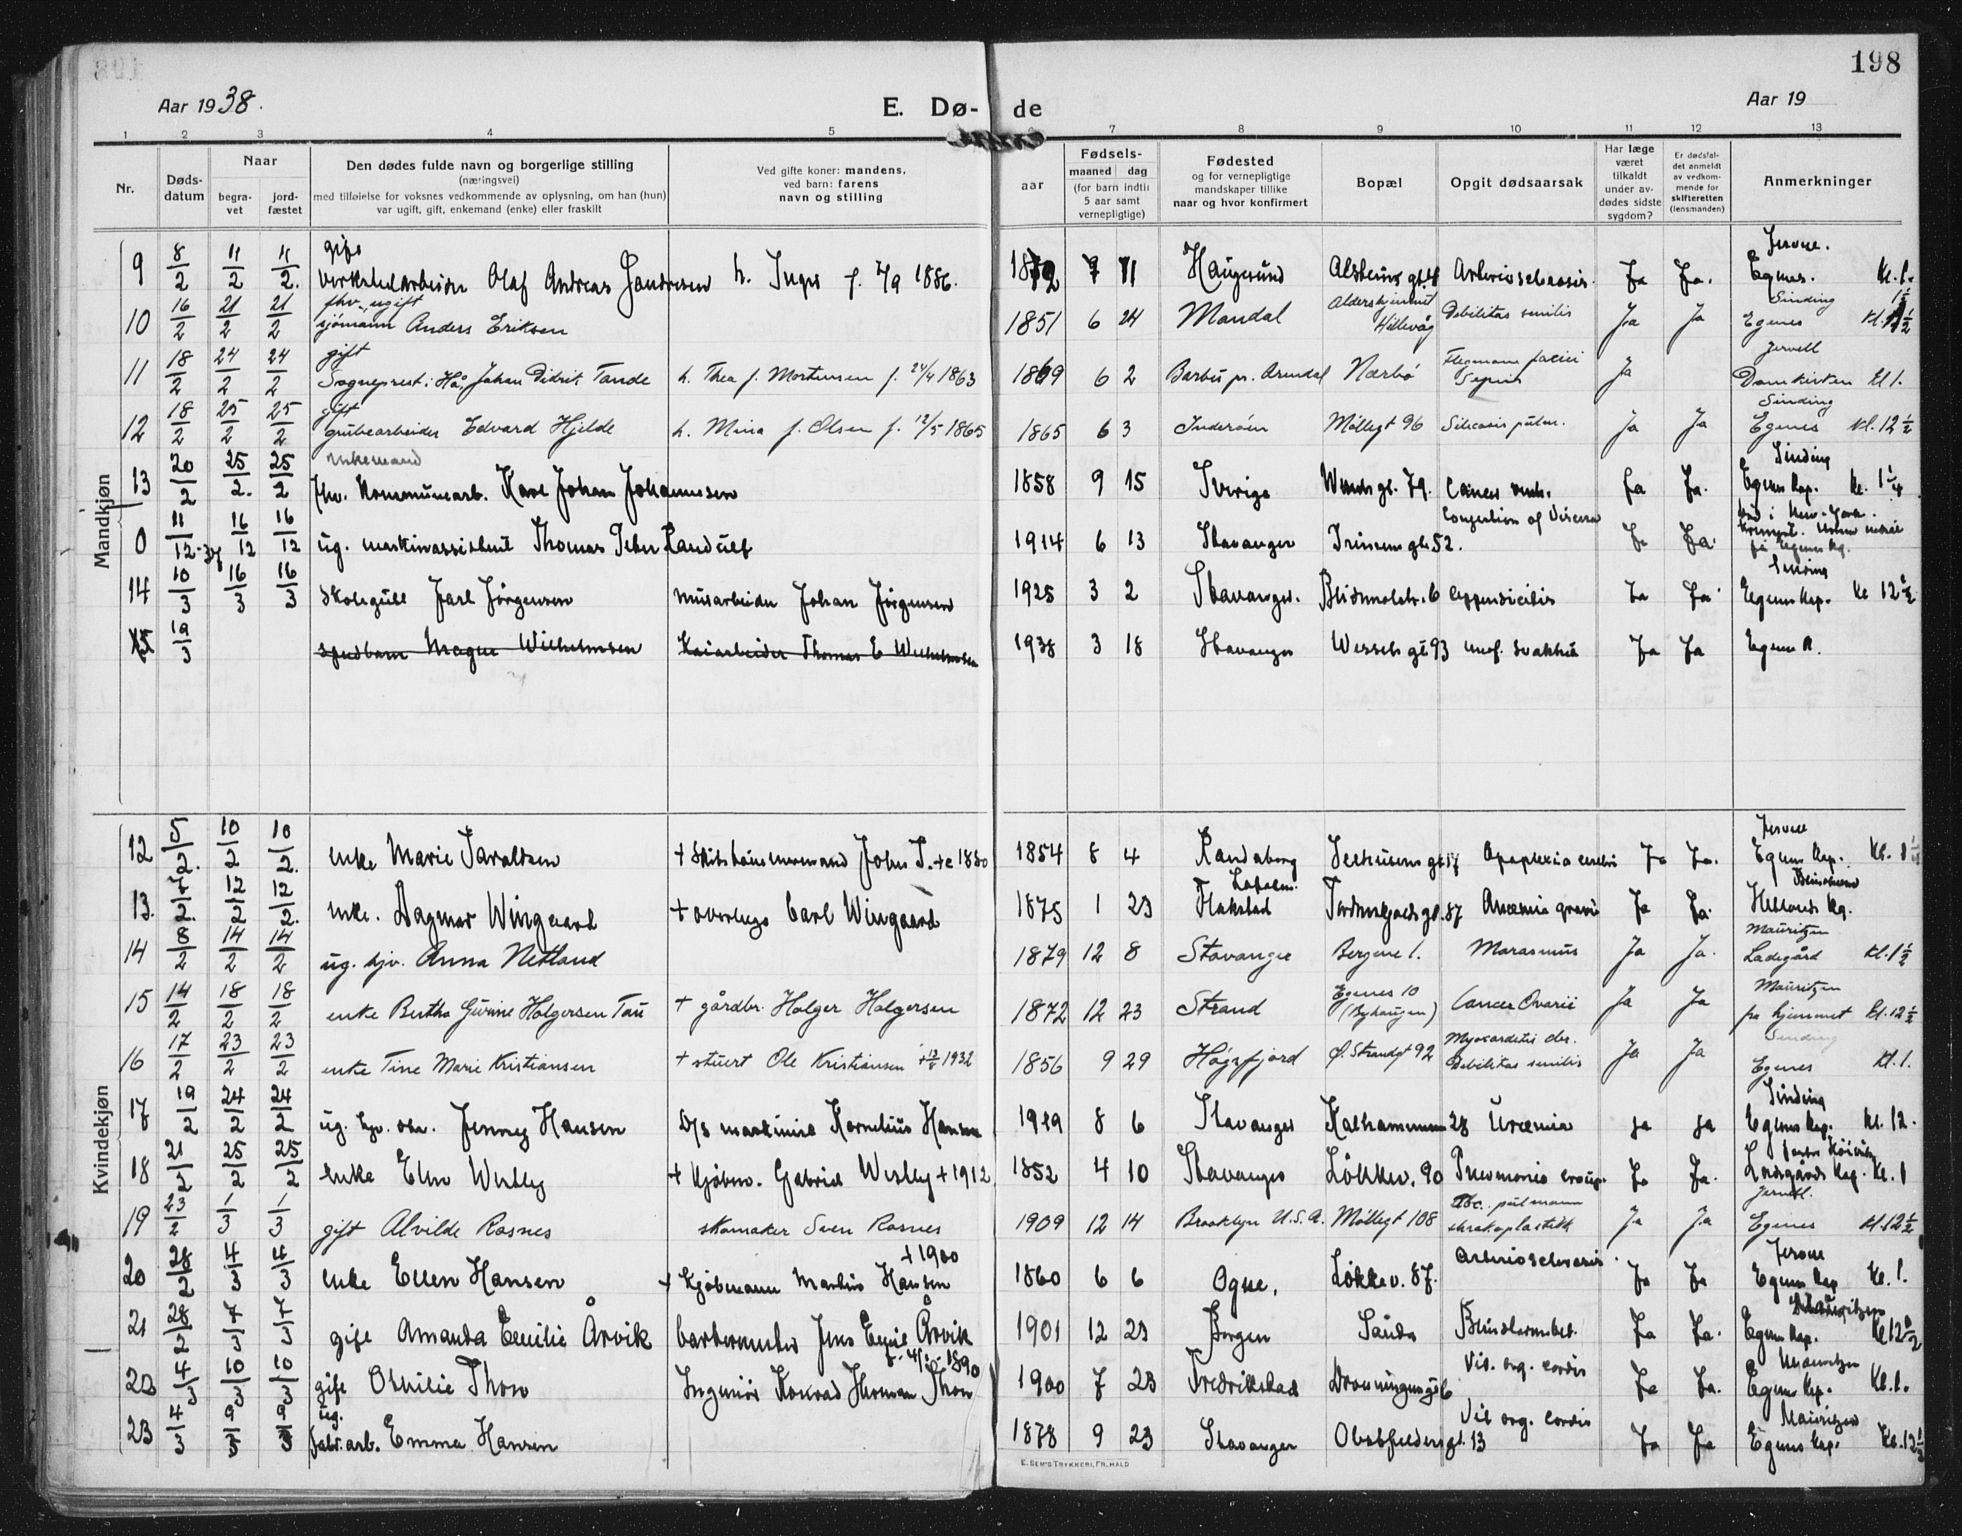 198
Aar 1938.
E. Dø- de
Aar 19
1 2 3 4 5 7 8 9 10 11 12 13
Nr.
Døds-
datum
Naar
begra-
vet
jord-
fæstet
Den dødes fulde navn og borgerlige stilling
(næringsvei)
med tilføielse for voksnes vedkommende av oplysning, om han (hun)
var ugift, gift, enkemand (enke) eller fraskilt
Ved gifte koner: mandens,
ved barn: farens
navn og stilling
aar
Fødsels-
maaned dag
(for barn indtil
5 aar samt
vernepligtige)
Fødested
og for vernepligtige
mandskaper tillike
naar og hvor konfirmert
Bopæl
Opgit dødsaarsak
Har læge
været
tilkaldt
under av-
dødes sidste
sygdom?
Er dødsfal-
det anmeldt
av vedkom-
mende for
skifteretten
(lensmanden)
Anmerkninger
Mandkjøn
gift Jervell.
9 8/2 11/2 11/2. Olaf Andreas h. Inga f. 7/9 1886. 1872 11 Haugesund Ja Ja. Egenes. Kl. 1.
fhv. ugift Aldershjemmet Sinding
10 16/2 21/2 21/2 sjømann Anders Eriksen 1851 6 24 Mandal Hillevåg Debilitas senilis Ja Ja Egenes Kl. 1 1/2
gift Jervell
11 18/2 24/2 24/2 Sogneprest i Hå, Johan Didrik Tande h. Thea f. Mortensen f. 24/4 1863 1869 6 2 Barbu pr. Arendal Nærbø Ja Domkirken Kl 1.
gift Sinding
12 18/2 25/2 25/2 grubearbeider Edvard Hjelde h. Mina f. Olsen f. 12/5 1865 1865 6 3 Inderøen Møllegt 96 Silicosis pulm. Ja Ja Egenes Kl. 12 1/2
enkemand Sinding
13 20/2 25/2. 25/2 fhv. Komunearb. Karl Johan Johannesen 1858 9 15 Sverige gt. 79. Cancer Ja Ja. Egenes Kap. Kl. 1 1/4
Congestion of Viscera død i New-York.
0 11/12-37 16/12 16/12 ug. maskinassistent Thomas Peter Randulf 1914 6 13 Stavanger 52. Ja Ja. på Egenes Kg.
Sinding
14 10/3 16/3 16/3 Skolegutt Jarl Jørgensen murarbeider Johan Jørgensen 1925 3 2 Stavanger. 6 Appendicitis Ja Ja Egenes Kap. Kl 12 1/2
15 19/3 spedbarn Magne Wilhelmsen Kaiarbeider Thomas E Wilhelmsen 1938 3 18 Stavanger Wessels gt 93 medf. svakhet Ja Ja Egenes K.
Kvindekjøn
Jervell
12 5/2. 10/2 10/2. enke Marie Taraldsen + Johs T. + 1930 1854 8 4 Randaberg 17 Apoplexia cerebri Ja Ja. Egenes Kap. Kl. 1 1/4
Lofoten.
13. 7/2. 12/2 12/2. enke. Dagmar Wingaard + overlege Carl Wingaard 1875 1 23 Flakstad Tordenskjolds gt. 37 Anæmia gravis Ja Ja. Hetlands Kg.
Mauritzen
14 8/2 14/2 14/2 ug. hjv. Anna Netland 1879 12 8 Stavanger Bergene 1. Marasmus Ja Ja. Ladegård Kl. 1 1/2
Egenes 10 Mauritzen
15 14/2 18/2 18/2 enke Bertha Gurine Holgersen Tau + gårdbr. Holger Holgersen 1872 12 23 Strand (Byhaugen) Cancer Ovarii Ja Ja fra hjemmet Kl. 12 1/2
Sinding
16 17/2 23/2 23/2 enke Tine Marie Kristiansen + stuert Ole Kristiansen 1932 1856 9 29 Høgsfjord Ø. Strandgt 92 Debilitas senilis Ja Ja Egenes Kl. 1.
Sinding
17 19/2 24/2 24/2 ug. Jenny Hansen D/s maskinist Kornelius Hansen 1919 8 6 Stavanger Kalhammeren 28 Uræmia Ja Ja Egenes Kap. Kl. 12.
18 21/2 25/2 25/2 enke Elen Westby + kjøbm. Gabriel Westby + 1912 1852 4 10 Stavanger Løkkev. 90 Pneumonia croup. Ja Ja. Ladegårds Kap. Kl. 1
Tbc. pulmonum Jervell.
19 23/2 1/3 1/3 gift Alvilde Rosnes skomaker Sven Rosnes 1909 12 14 Brooklyn U.S.A. Møllegt 108 thorakoplastikk Ja Ja Egenes Kl. 12 1/2
+ 1900 Arteriosclerosis Jervell
20 28/2 4/3 4/3 enke Ellen Hansen + Kjøbmann Martin Hansen 1860 6 6 Ogne. Løkkev. 87. Ja Ja Egenes Kap Kl. 1.
Mauritzen
21 28/2 7/3 7/3 gift Amanda Cecilie Årvik barbermester Jens Emil Årvik 1901 12 23 Bergen Sauda Ja Ja. Egenes Kap. Kl 12 1/2
1890 Vit. org. cordis Mauritzen
22 4/3 10/3 10/3 gift Othilie Thon Ingeniør Konrad Herman Thon 1900 7 23 Fredrikstad Dronningensgt 6 Ja Ja. Egenes Kap. Kl. 1.
ug. Vit org. cordis Mauritzen
23 4/3 9/3 9/3 fabr.arb. Emma Hansen 1878 9 23 Stavanger Obstfelders gt. 13 Ja Ja Egenes Kap. Kl. 12 1/2
E. SEM'S TRYKKERI, FR.HALD